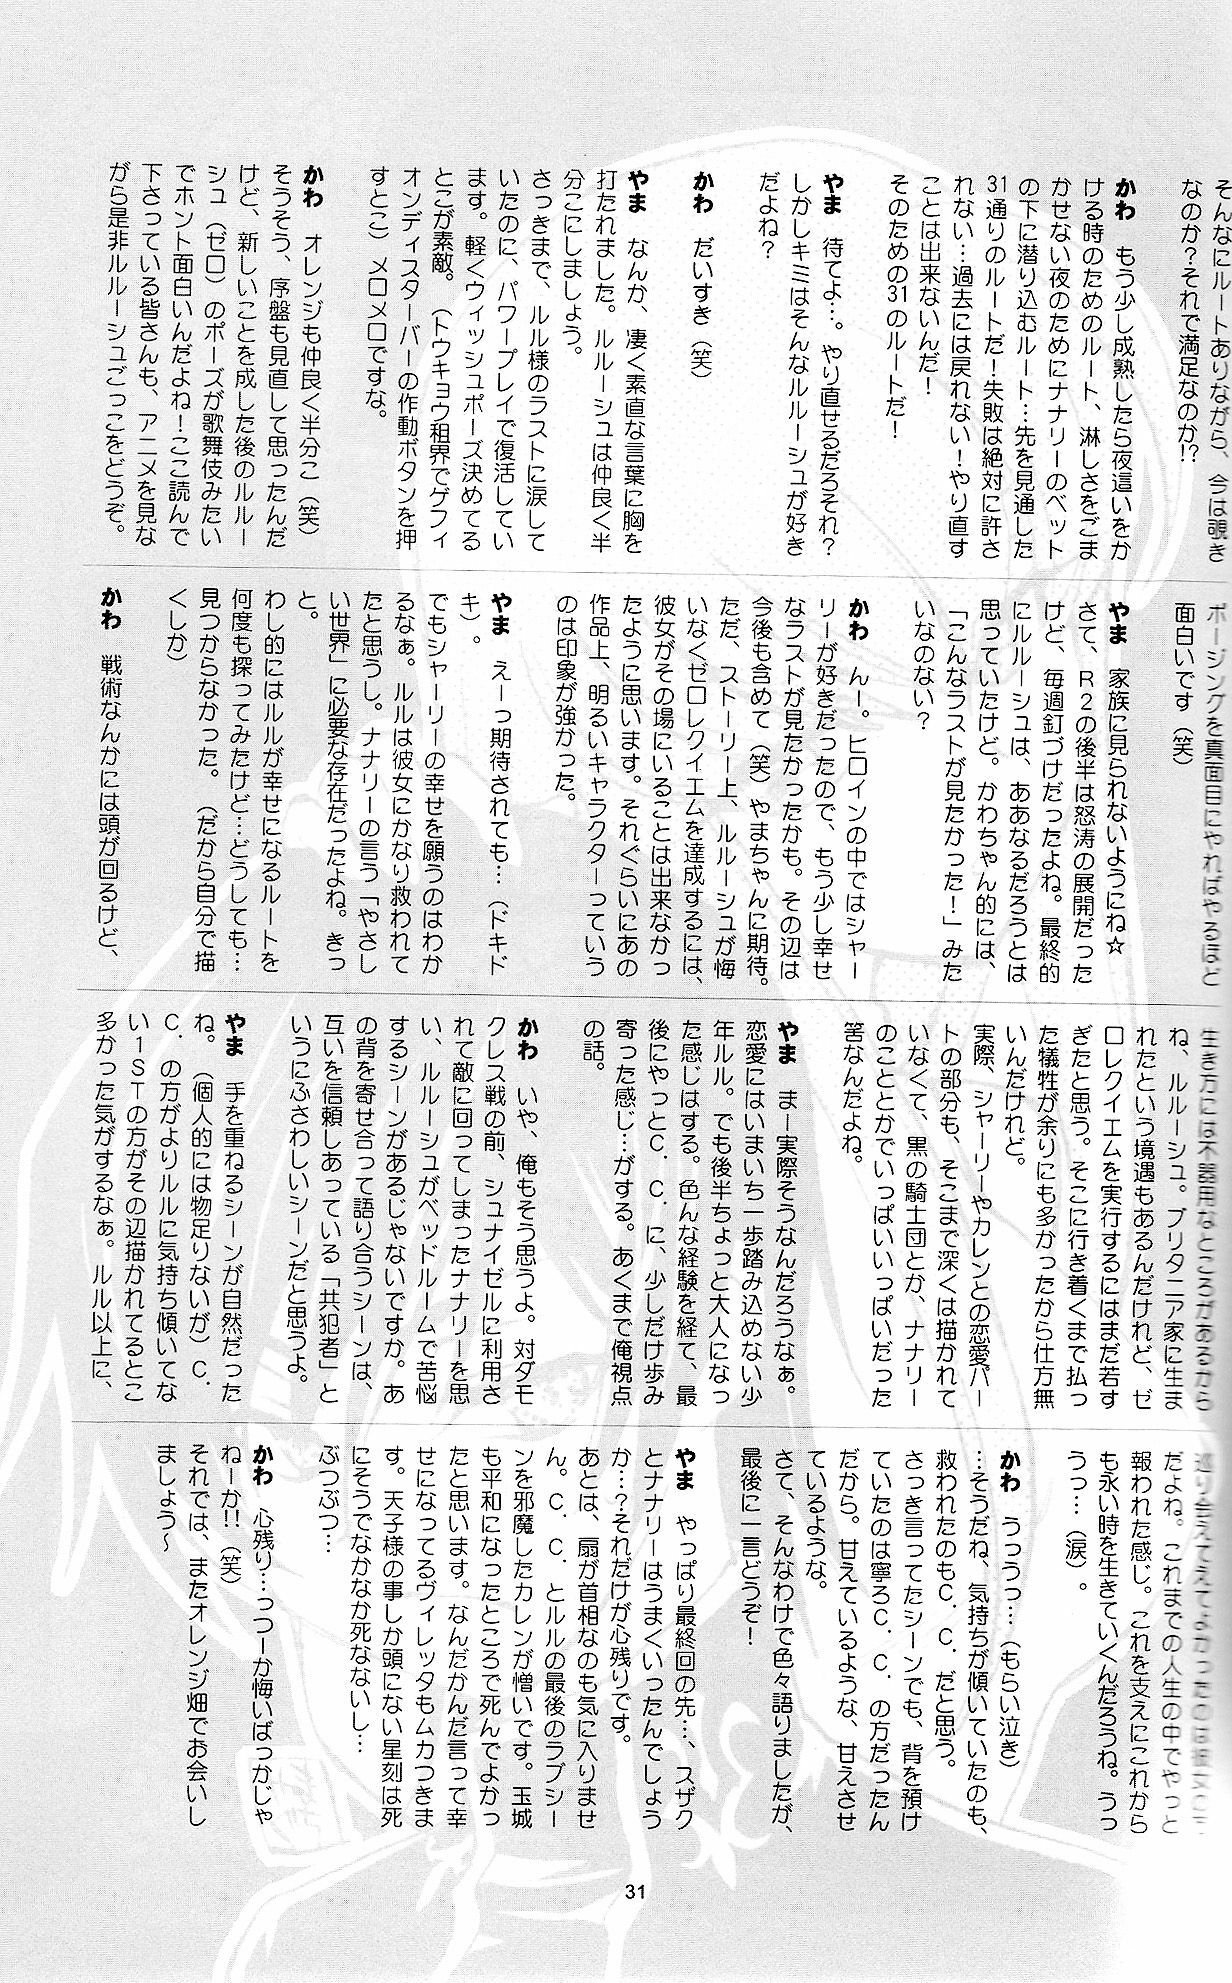 そんなにルートありながら、今は覗き
なのか?それで満足なのか!?
かわ もう少し成熟したら夜這いをか
ける時のためのルート、淋しさをごま
かせない夜のためにナナリーのベット
の下に潜り込むルート…先を見通した
31通りのルートだ!失敗は絶対に許さ
れない…過去には戻れない!やり直す
ことは出来ないんだ!
そのための31のルートだ!
やま 待てよ…。やり直せるだろそれ?
しかしキミはそんなルルーシュが好き
だよね?
かわ だいすき(笑)
やま なんか、凄く素直な言葉に胸を
打たれました。ルルーシュは仲良く半
分こにしましょう。
さっきまで、ルル様のラストに涙して
いたのに、パワープレイで復活してい
ます。軽くウィッシュポーズ決めてる
とこが素敵。(トウキョウ租界でゲフィ
オンディスターバーの作動ボタンを押
すとこ)メロメロですな。
かわ オレンジも仲良く半分こ(笑)
そうそう、序盤も見直して思ったんだ
けど、新しいことを成した後のルルー
シュ(ゼロ)のポーズが歌舞伎みたい
でホント面白いんだよね!ここ読んで
下さっている皆さんも、アニメを見な
がら是非ルルーシュごっこをどうぞ。
ポージングを真面目にやればやるほど
面白いです(笑)
やま 家族に見られないようにね☆
さて、R2の後半は怒涛の展開だった
けど、毎週釘づけだったよね。最終的
にルルーシュは、ああなるだろうとは
思っていたけど。かわちゃん的には、
「こんなラストが見たかった!」みた
いなのない?
かわ んー。ヒロインの中ではシャー
リーが好きだったので、もう少し幸せ
なラストが見たかったかも。その辺は
今後も含めて(笑)やまちゃんに期待。
ただ、ストーリー上、ルルーシュが悔
いなくゼロレクイエムを達成するには、
彼女がその場にいることは出来なかっ
たように思います。それぐらいにあの
作品上、明るいキャラクターっていう
のは印象が強かった。
やま えーっ期待されても…(ドキド
キ)。
でもシャーリーの幸せを願うのはわか
るなぁ。ルルは彼女にかなり救われて
たと思うし。ナナリーの言う「やさし
い世界」に必要な存在だったよね。きっ
と。
わし的にはルルが幸せになるルートを
何度も探ってみたけど…どうしても…
見つからなかった。(だから自分で描
くしか)
かわ 戦術なんかには頭が回るけど、
生き方には不器用なところがあるから
ね、ルルーシュ。ブリタニア家に生ま
れたという境遇もあるんだけれど、ゼ
ロレクイエムを実行するにはまだ若す
ぎたと思う。そこに行き着くまで払っ
た犠牲が余りにも多かったから仕方無
いんだけれど。
実際、シャーリーやカレンとの恋愛パー
トの部分も、そこまで深くは描かれて
いなくて、黒の騎士団とか、ナナリー
のこととかでいっぱいいっぱいだった
筈なんだよね。
やま まー実際そうなんだろうなぁ。
恋愛にはいまいち一歩踏み込めない少
年ルル。でも後半ちょっと大人になっ
た感じはする。色んな経験を経て、最
後にやっとC.C.に、少しだけ歩み
寄った感じ…がする。あくまで俺視点
の話。
かわ いや、俺もそう思うよ。対ダモ
クレス戦の前、シュナイゼルに利用さ
れて敵に回ってしまったナナリーを思
い、ルルーシュがベッドルームで苦悩
するシーンがあるじゃないですか。あ
の背を寄せ合って語り合うシーンは、
互いを信頼しあっている「共犯者」と
いうにふさわしいシーンだと思うよ。
やま 手を重ねるシーンが自然だった
ね。(個人的には物足りないが)C.
C.の方がよりルルに気持ち傾いてな
い1STの方がその辺描かれてるとこ
多かった気がするなぁ。ルル以上に、
巡り会えてえてよかったのは彼女の方
だよね。これまでの人生の中でやっと
報われた感じ。これを支えにこれから
も永い時を生きていくんだろうね。うっ
うっ…(涙)。
かわ うっうっ…(もらい泣き)
…そうだね、気持ちが傾いていたのも、
救われたのもC.C.だと思う。
さっき言ってたシーンでも、背を預け
ていたのは寧ろC.C.の方だったん
だから。甘えているような、甘えさせ
ているような。
さて、そんなわけで色々語りましたが、
最後に一言どうぞ!
やま やっぱり最終回の先…、スザク
とナナリーはうまくいったんでしょう
か…?それだけが心残りです。
あとは、扇が首相なのも気に入りませ
ん。C.C.とルルの最後のラブシー
ンを邪魔したカレンが憎いです。玉城
も平和になったところで死んでよかっ
たと思います。なんだかんだ言って幸
せになってるヴィレッタもムカつきま
す。天子様の事しか頭にない星刻は死
にそうでなかなか死なないし…
ぶつぶつ…
かわ 心残り…っつーか悔いばっかじゃ
ねーか!!(笑)
それでは、またオレンジ畑でお会いし
ましょう〜
31